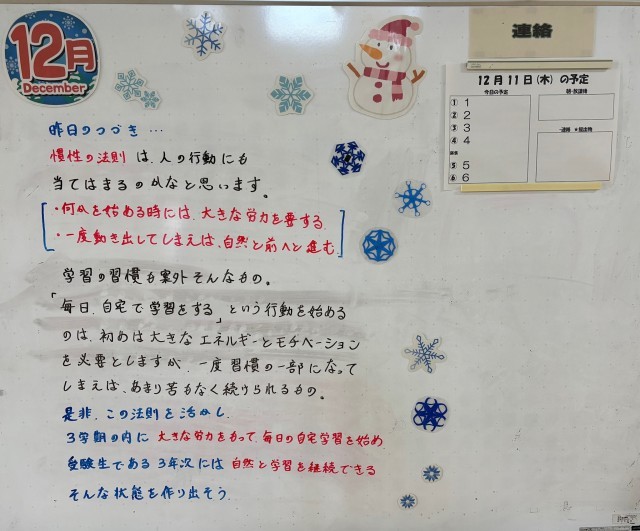 12月
December
連絡
12月11日(木)の予定
今日の予定
① 1
② 2
③ 3
④ 4
⑤ 5
⑥ 6
昨日のつづき…
慣性の法則は、人の行動にも
当てはまるのかなと思います。
・何かを始める時には、大きな労力を要する
・一度動き出してしまえば、自然と前へと進む
学習の習慣も案外そんなもの。
「毎日、自宅で学習をする」という行動を始める
のは、初めは大きなエネルギーとモチベーション
を必要としますが、一度習慣の一部になって
しまえば、あまり苦もなく続けられるもの。
是非、この法則を活かし、
3学期の内に大きな労力をもって、毎日の自宅学習を始め
受験生である3年次には自然と学習を継続できる
そんな状態を作り出そう。